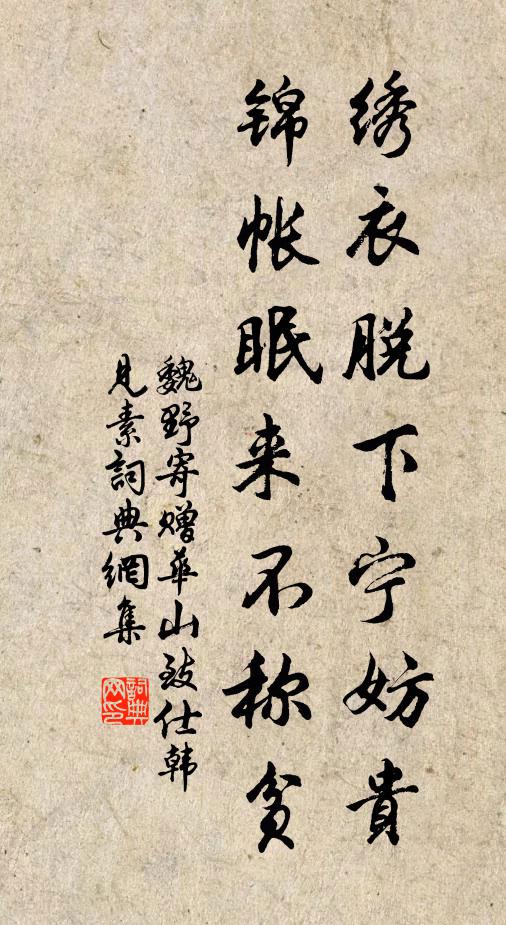 绣衣脱下宁妨貴
锦帐眠来不称贫
魏野寄赠華山致仕韩
见素詞典網集
詞典
网印